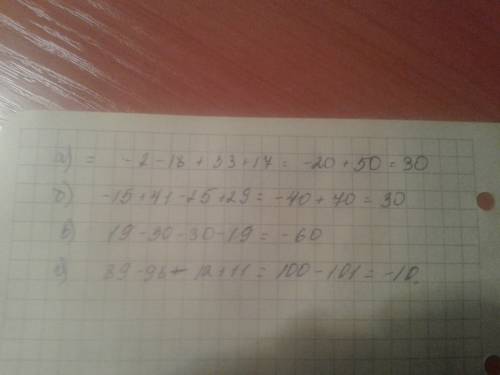 а) = -2-18+33+17= -20+50=30
б) -15+41-25+29= -40+70=30
в) 19-30-30-19= -60
= 100-101= -10.